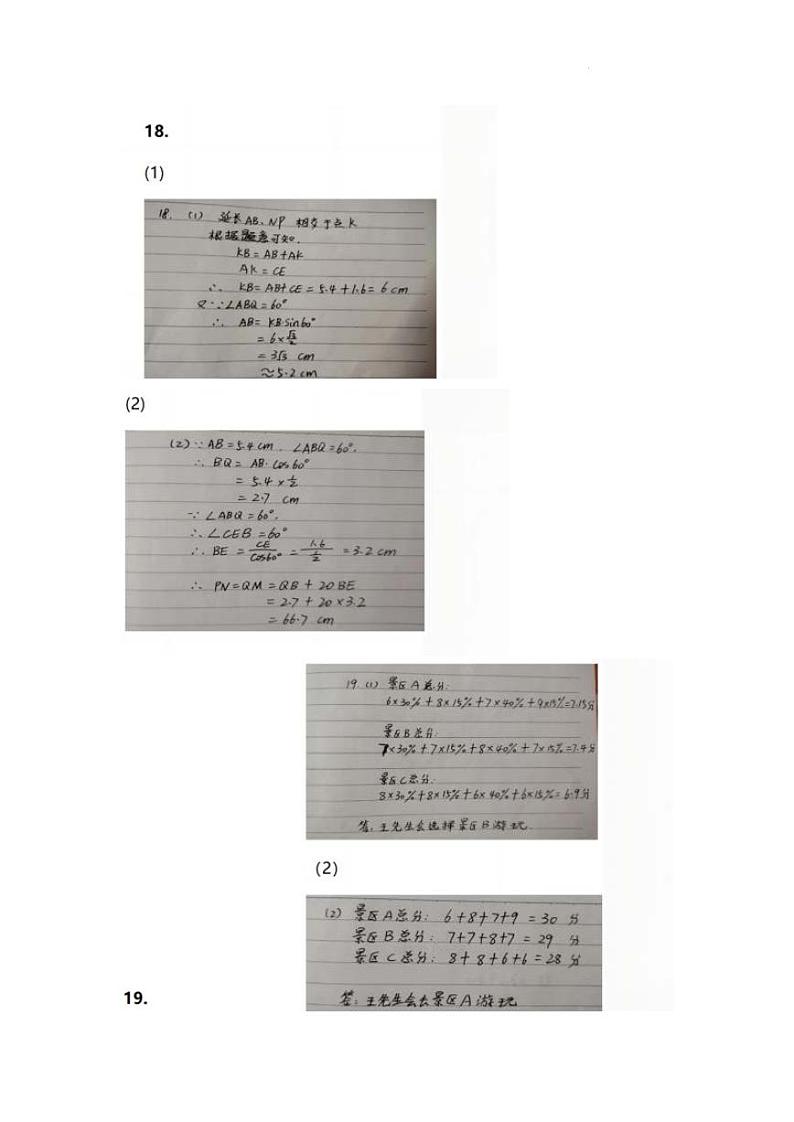 18.
(1)
18. (1) 延长AB、NP 相交于点K
根据题意可知.
KB=AB+AK
AK=CE
∴ KB=AB+CE=5.4+1.6=6 cm
又∵∠ABQ=60°
∴ AB= KB·sin60°
=6×√3/2
=3√3 cm
≈5.2 cm
(2)
(2)∵AB=5.4 cm. ∠ABQ=60°.
∴ BQ= AB·cos60°
= 5.4×1/2
= 2.7 cm
∵ ∠ABQ=60°.
∴∠CEB=60°
∴ BE = CE/cos60° = 1.6/(1/2) =3.2 cm
∴ PN=QM=QB+20BE
=2.7+20×3.2
=66.7 cm
19. (1) 景区A总分:
6×30%+8×15%+7×40%+9×15%=7.15分
景区B总分:
7×30%+7×15%+8×40%+7×15%=7.4分
景区C总分:
8×30%+8×15%+6×40%+6×15%=6.9分
答:王先生会选择景区B游玩.
(2)
(2) 景区A总分: 6+8+7+9=30 分
景区B总分: 7+7+8+7=29 分
景区C总分: 8+8+6+6=28分
答:王先生会去景区A游玩
19.